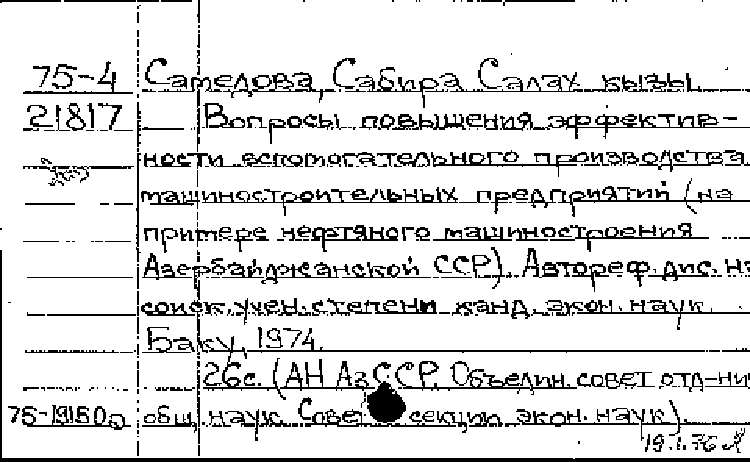 75-4 Самедова, Сабира Салах кызы.
21817 Вопросы повышения эффектив-
ности вспомогательного производства
машиностроительных предприятий (на
примере нефтяного машиностроения
Азербайджанской ССР). Автореф. дис. на
соиск. учен. степени канд. экон. наук.
Баку, 1974.
26с. (АН АзССР. Объедин. совет отд-ния
общ. наук. Совет секции экон. наук).
19.I.76